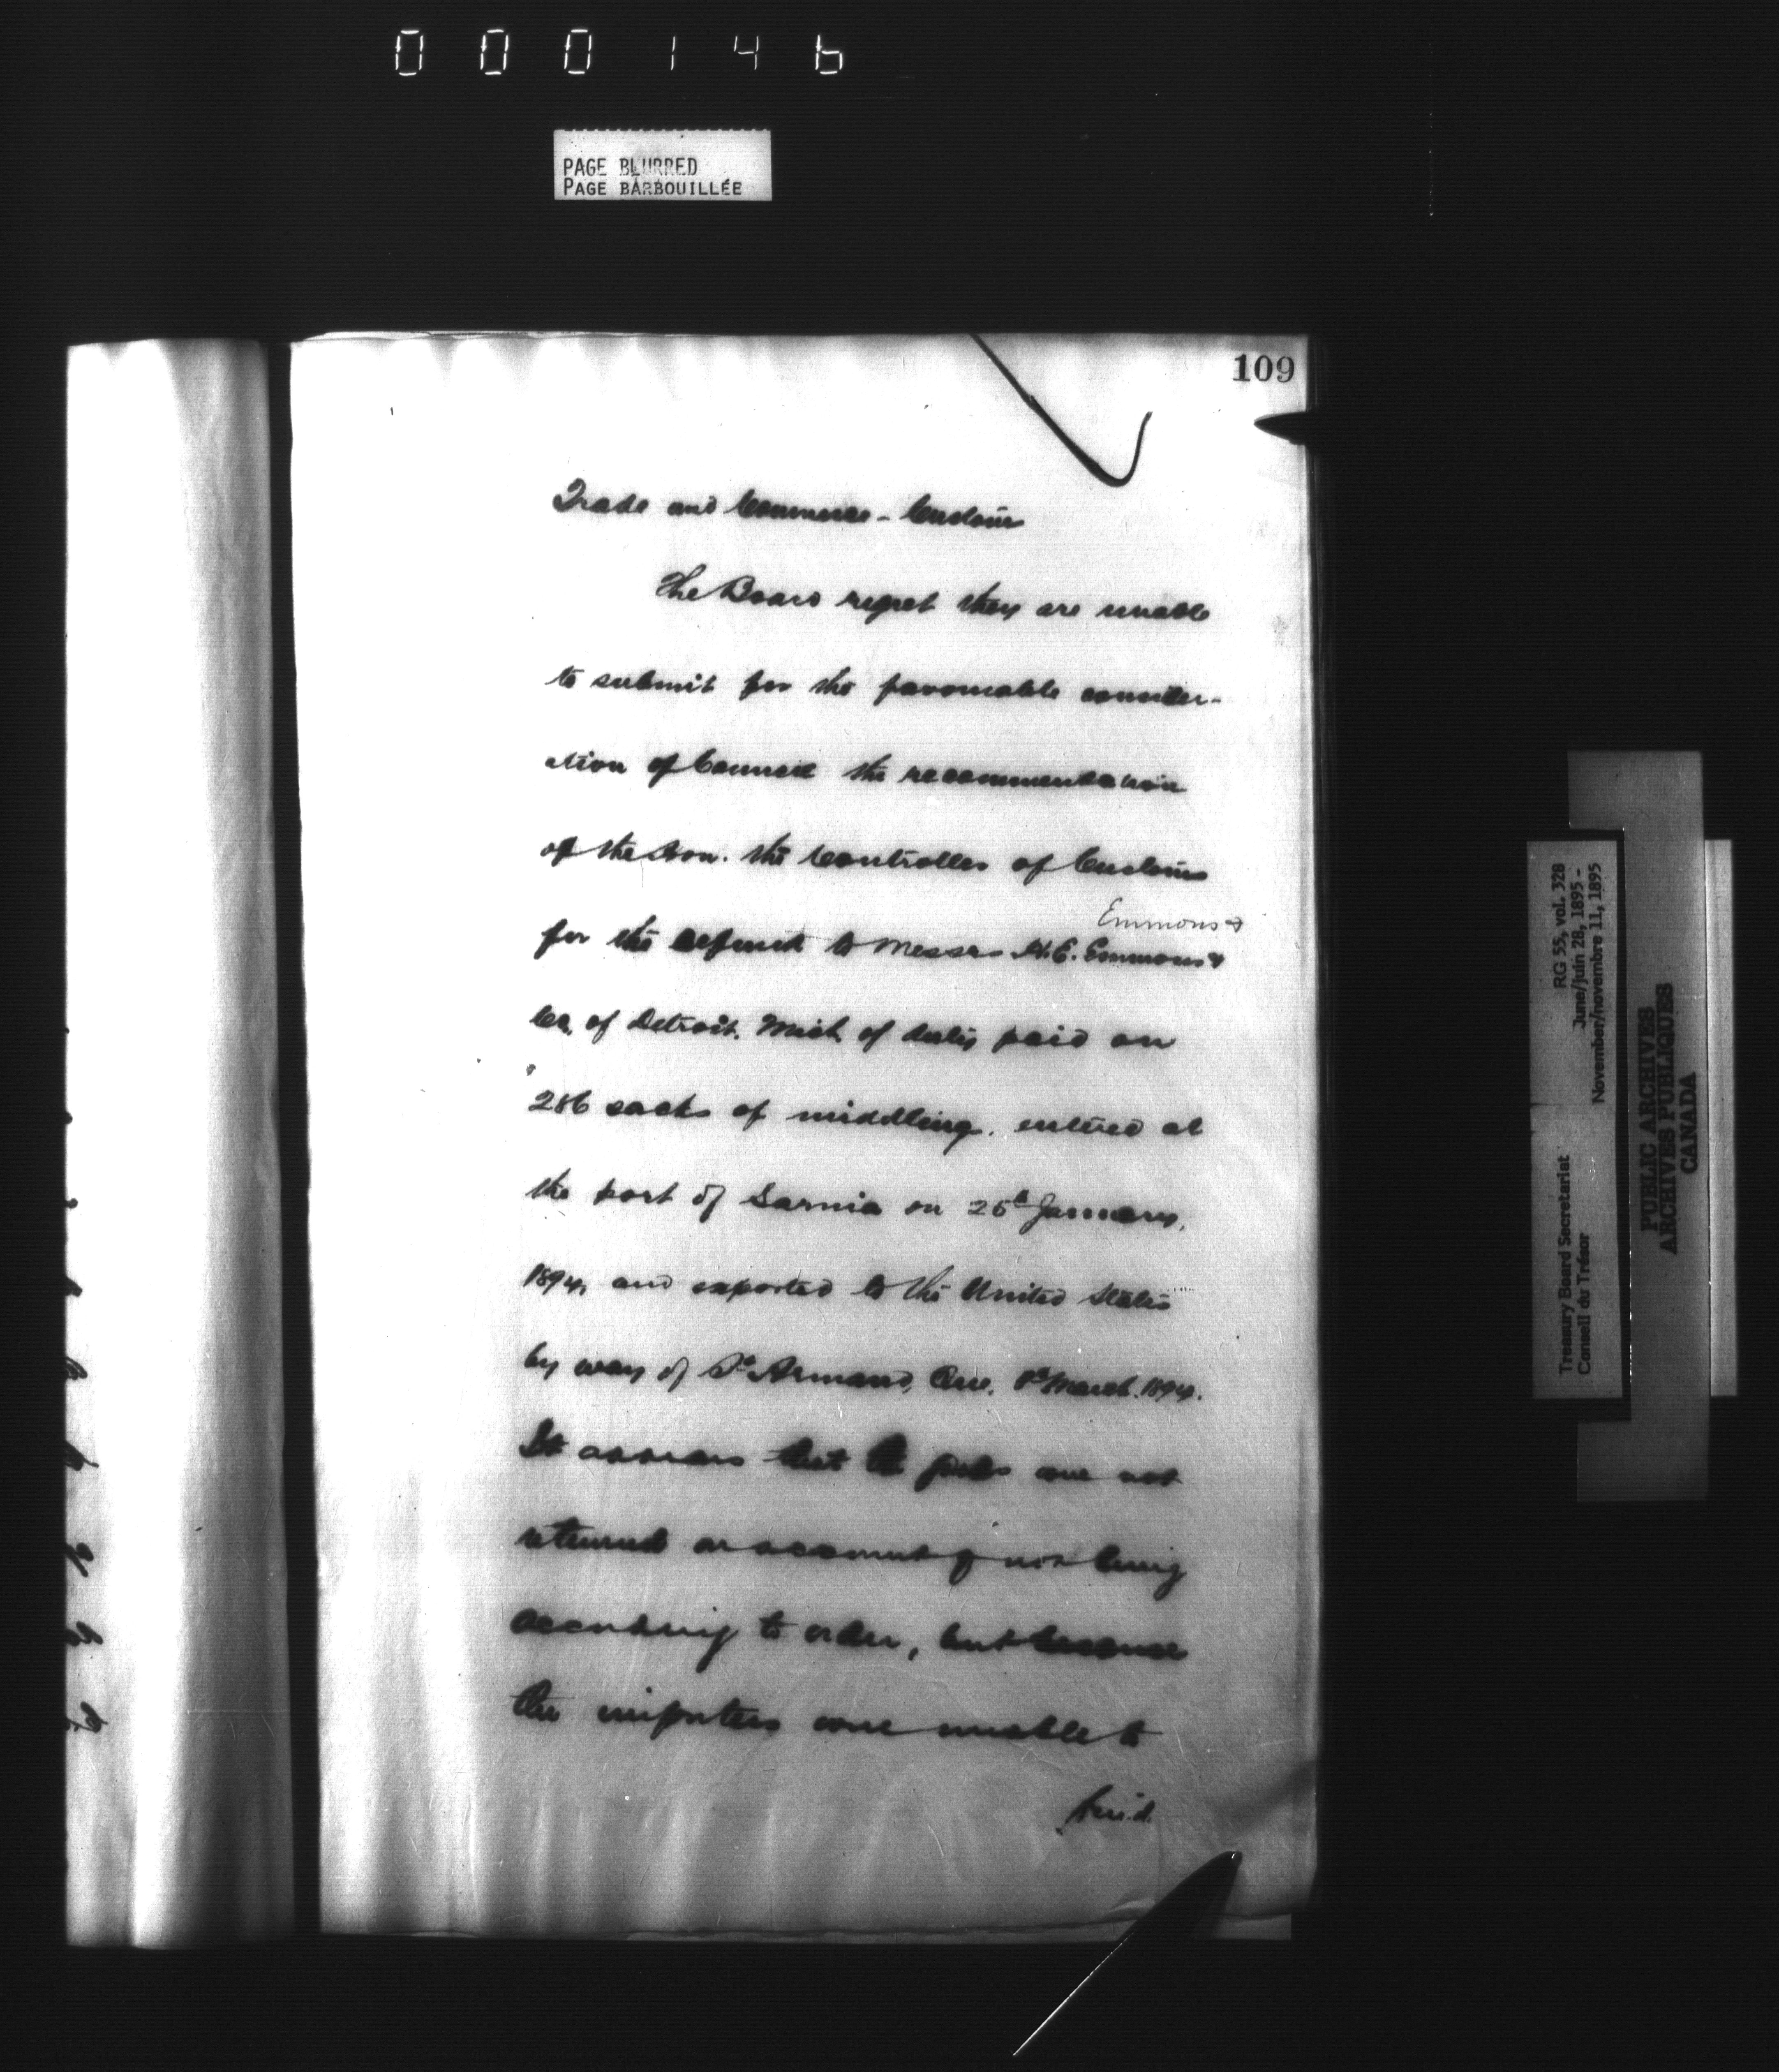 000146
PAGE BLURRED
PAGE BARBOUILLÉE
109
Trade and Commerce - Customs
The Board regret they are unable
to submit for the favourable consider-
ation of Council the recommendation
of the Hon. the Controller of Customs
Emmons &
for the refund to Messrs H.E. Emmons &
Co. of Detroit. Mich. of duty paid on
286 sacks of middling. entered at
the port of Sarnia on 25th January,
1894, and exported to the United States
by way of St Armand, Que. 1st March. 1894.
It appears that the goods are not
returned on account of not being
according to order, but because
the importers were unable to
find
Treasury Board Secretariat
Conseil du Trésor
RG 55, vol. 328
June/juin 28, 1895 -
November/novembre 11, 1895
PUBLIC ARCHIVES
ARCHIVES PUBLIQUES
CANADA